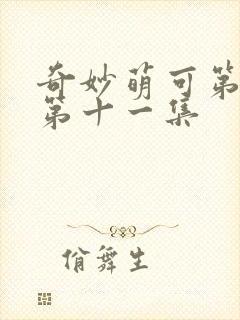 奇妙萌可第
第十一集
俏舞生